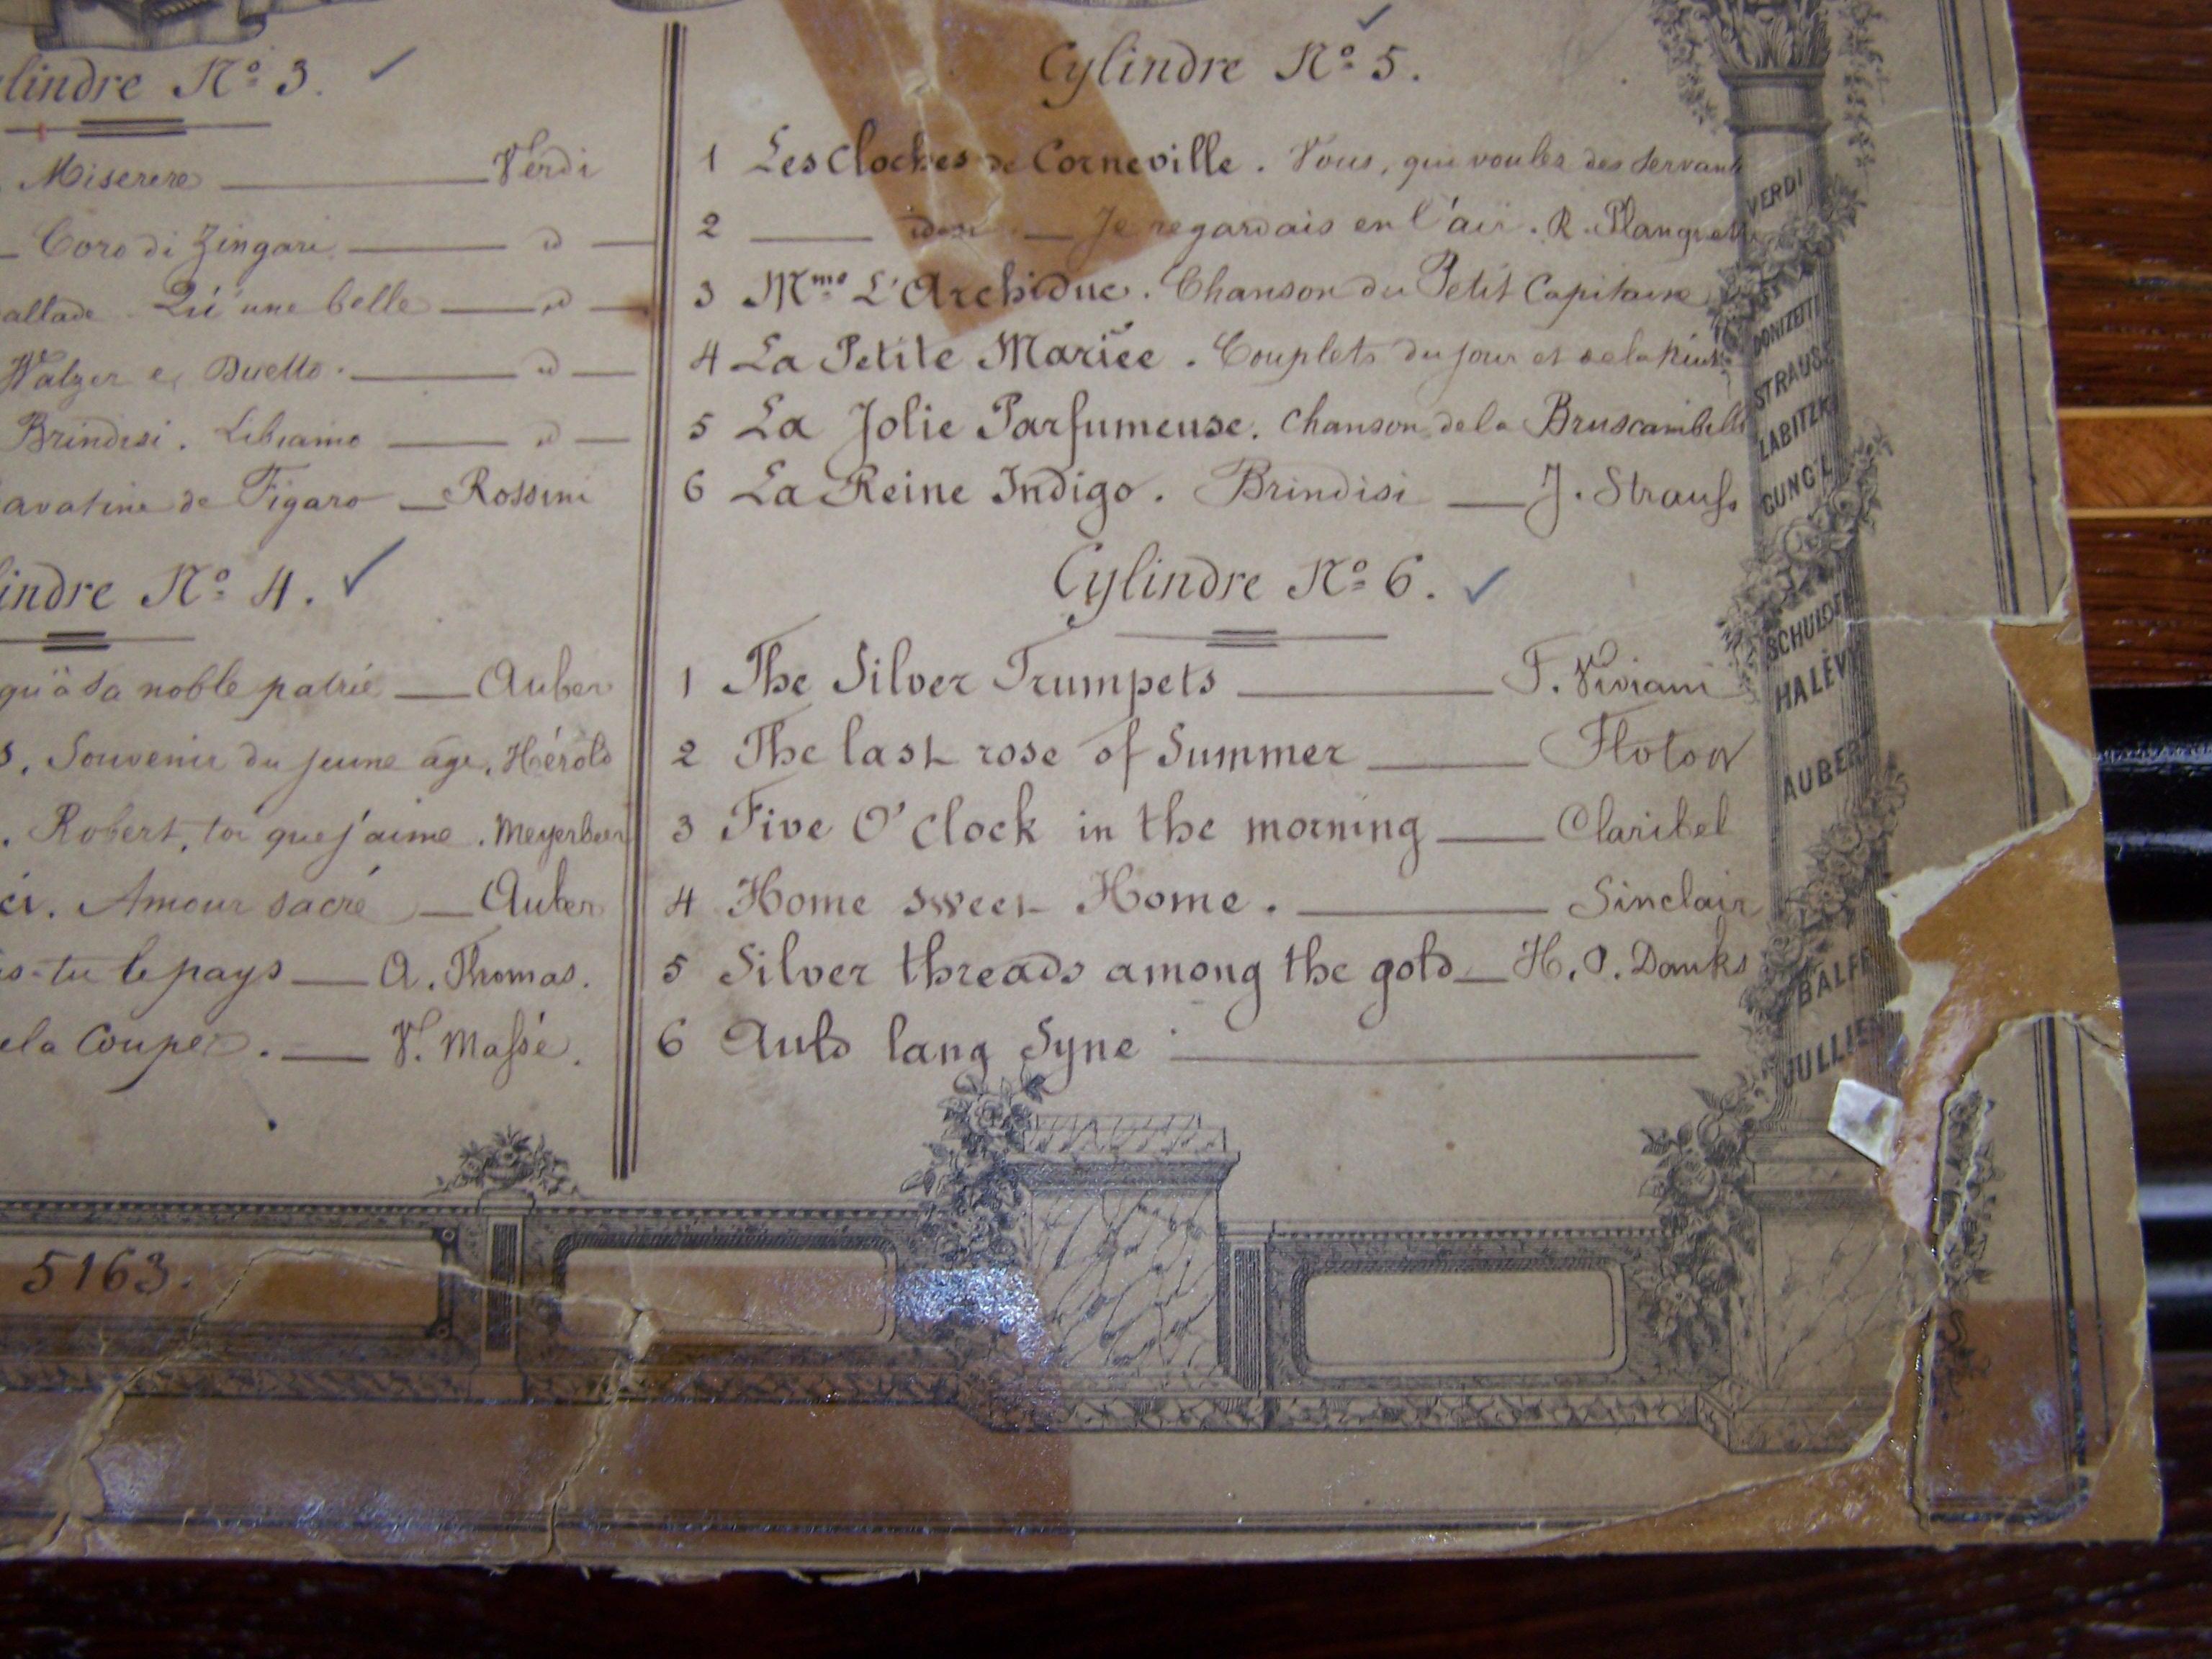 lindre Nº 3.
Miserere Verdi
Coro di Zingari d
allade Qu'une belle d
Walzer e Duetto. d
Brindisi. Libiamo d
avatine de Figaro Rossini
indre Nº 4.
qu'à sa noble patrie Auber
s. Souvenir du jeune âge. Hérold
. Robert, toi que j'aime. Meyerbeer
ci. Amour sacré Auber
s-tu le pays A. Thomas.
ela Coupe. V. Massé.
5163.
Cylindre Nº 5.
1 Les Cloches de Corneville. Vous, qui voulez des servant
2 idem Je regardais en l'air. R. Planquett
3 Mme L'Archiduc. Chanson du Petit Capitaine
4 La Petite Mariée. Couplets du jour et de la Nuit
5 La Jolie Parfumeuse. Chanson de la Bruscambille
6 La Reine Indigo. Brindisi J. Strauss
Cylindre Nº 6.
1 The Silver Trumpets F. Viviani
2 The last rose of Summer Flotow
3 Five O'Clock in the morning Claribel
4 Home sweet Home. Sinclair
5 Silver threads among the gold H. O. Danks
6 Auld lang Syne
VERDI
DONIZETTI
STRAUSS
LABITZK
GUNG'L
SCHULOF
HALÉVY
AUBER
BALFE
JULLIEN